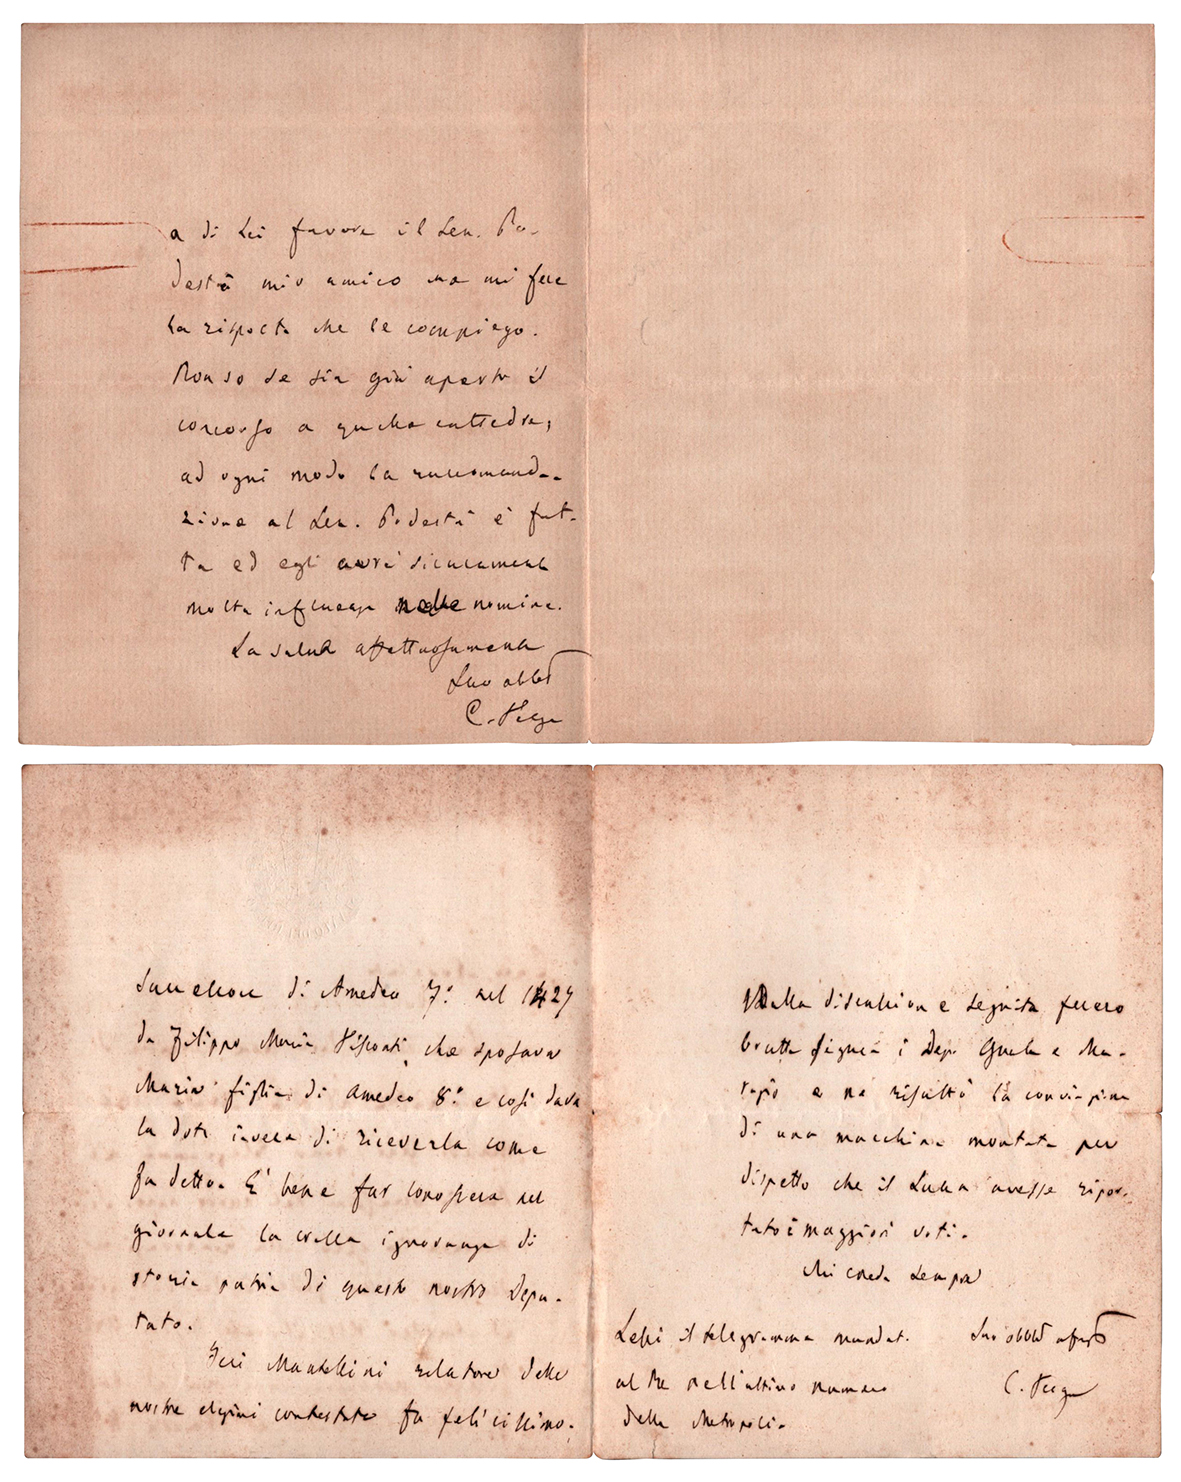 a di Lei favore il Sen. Po-
destà mio amico ma mi fece
la risposta che le compiego.
Non so se sia già aperto il
concorso a quella cattedra;
ad ogni modo la raccomanda-
zione al Sen. Podestà è fat-
ta ed egli avrà sicuramente
molta influenza nelle nomine.
La saluto affettuosamente
Suo obbl
C.
di Amedeo 7.° nel 1427
da Filippo Maria Visconti che sposava
Maria figlia di Amedeo 8.° e così dava
la dote invece di riceverla come
fu detto. E' bene far conoscere nel
giornale la crassa ignoranza di
storia patria di questo nostro Depu-
tato.
Ieri Mantellini relatore delle
nostre elezioni contestate fu felicissimo.
Nella discussione seguita fecero
brutta figura i Dep. e
e ne risultò la convinzione
di una macchina montata per
dispetto che il avesse ripor-
tato i maggiori voti.
Mi creda sempre
Suo obbl
C.
Lessi il telegramma mandat.
al Re nell'ultimo numero
della Metropoli.